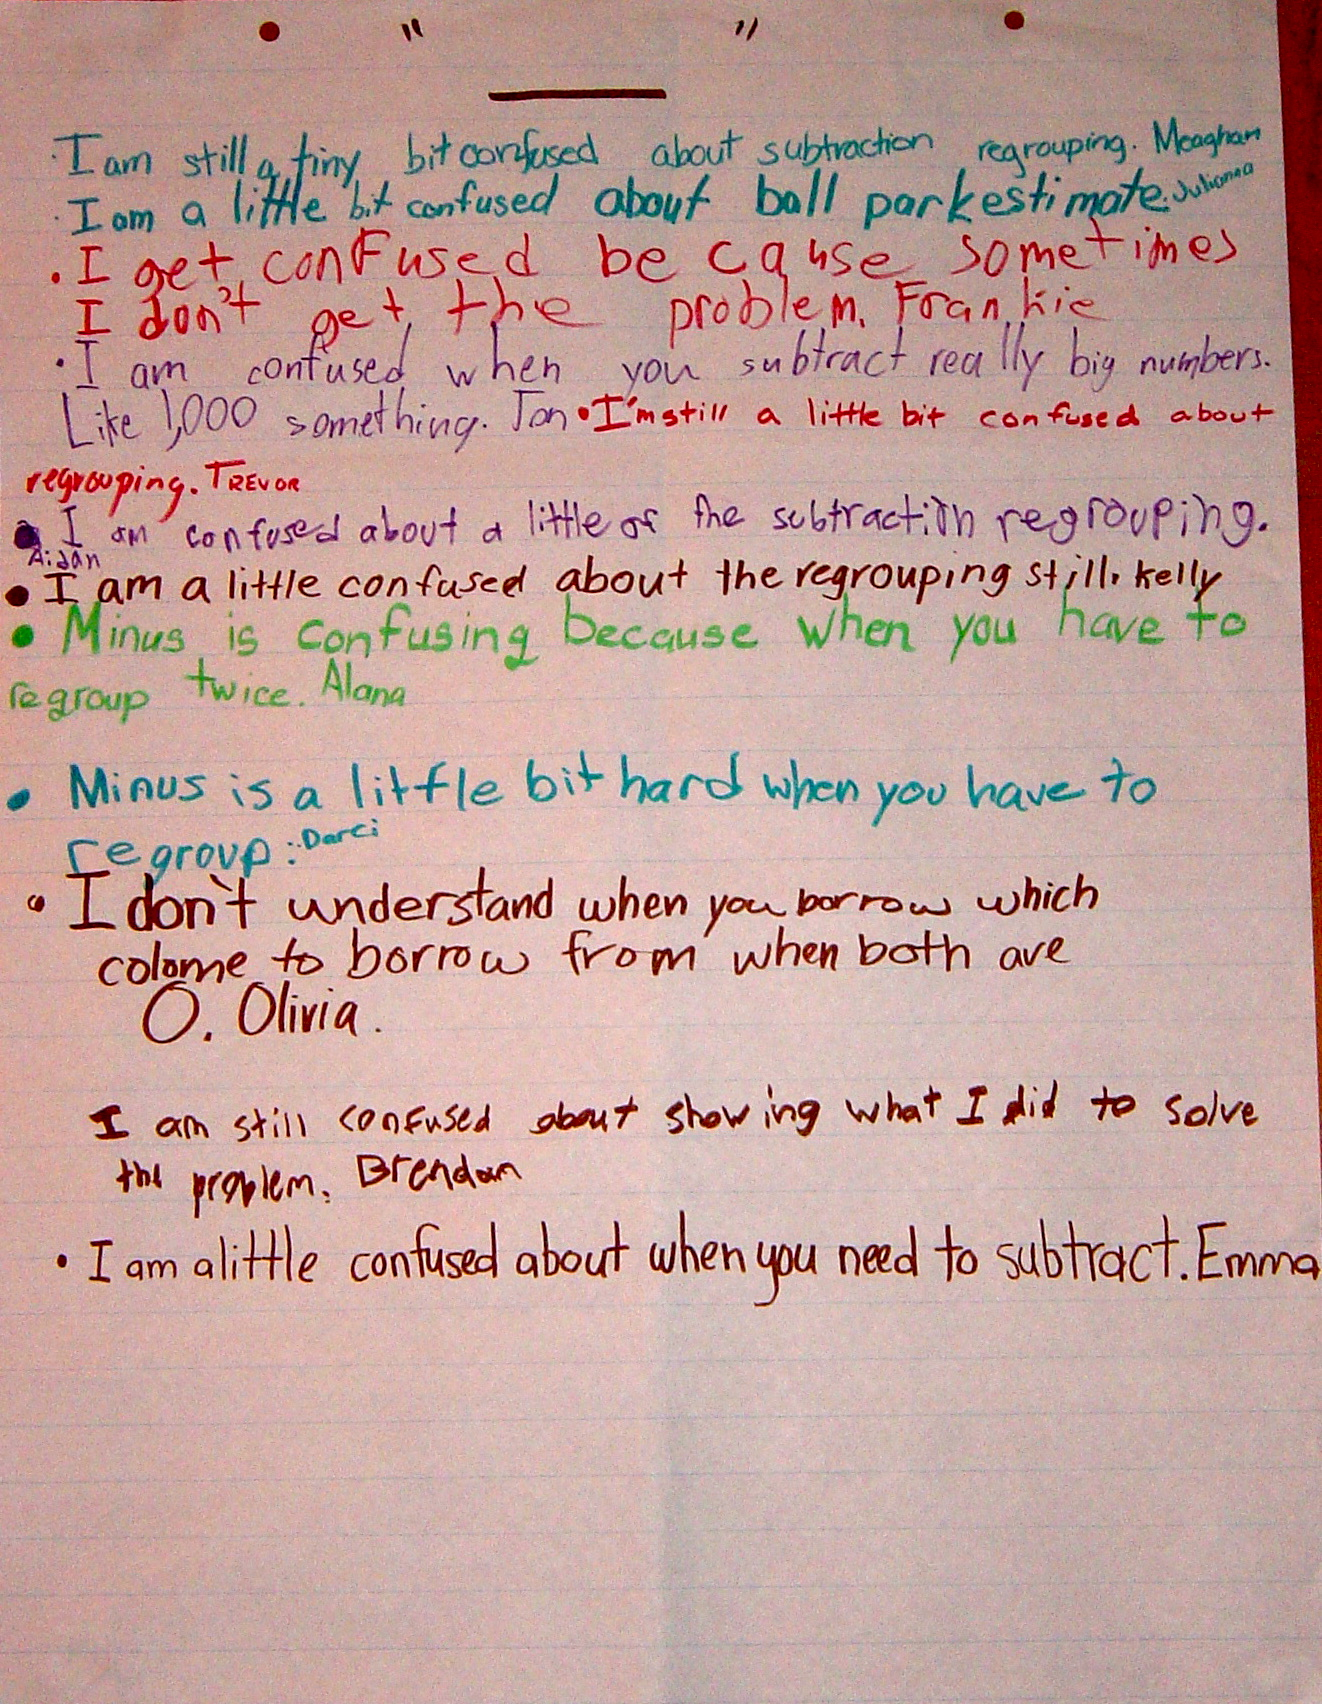 " "
· I am still a tiny bit confused about subtraction regrouping. Meaghan
· I am a little bit confused about ball park estimate. Julianna
· I get confused be cause sometimes
I don't get the problem. Frankie
· I am confused when you subtract really big numbers.
Like 1,000 something. Jon • I'm still a little bit confused about
regrouping. TREVOR
• I am confused about a little of the subtraction regrouping.
Aidan
• I am a little confused about the regrouping still. kelly
• Minus is confusing because when you have to
regroup twice. Alana
• Minus is a little bit hard when you have to
regroup :Darci
• I don't understand when you borrow which
colome to borrow from when both are
0. Olivia.
I am still confused about showing what I did to solve
the problem. Brendan
• I am a little confused about when you need to subtract. Emma